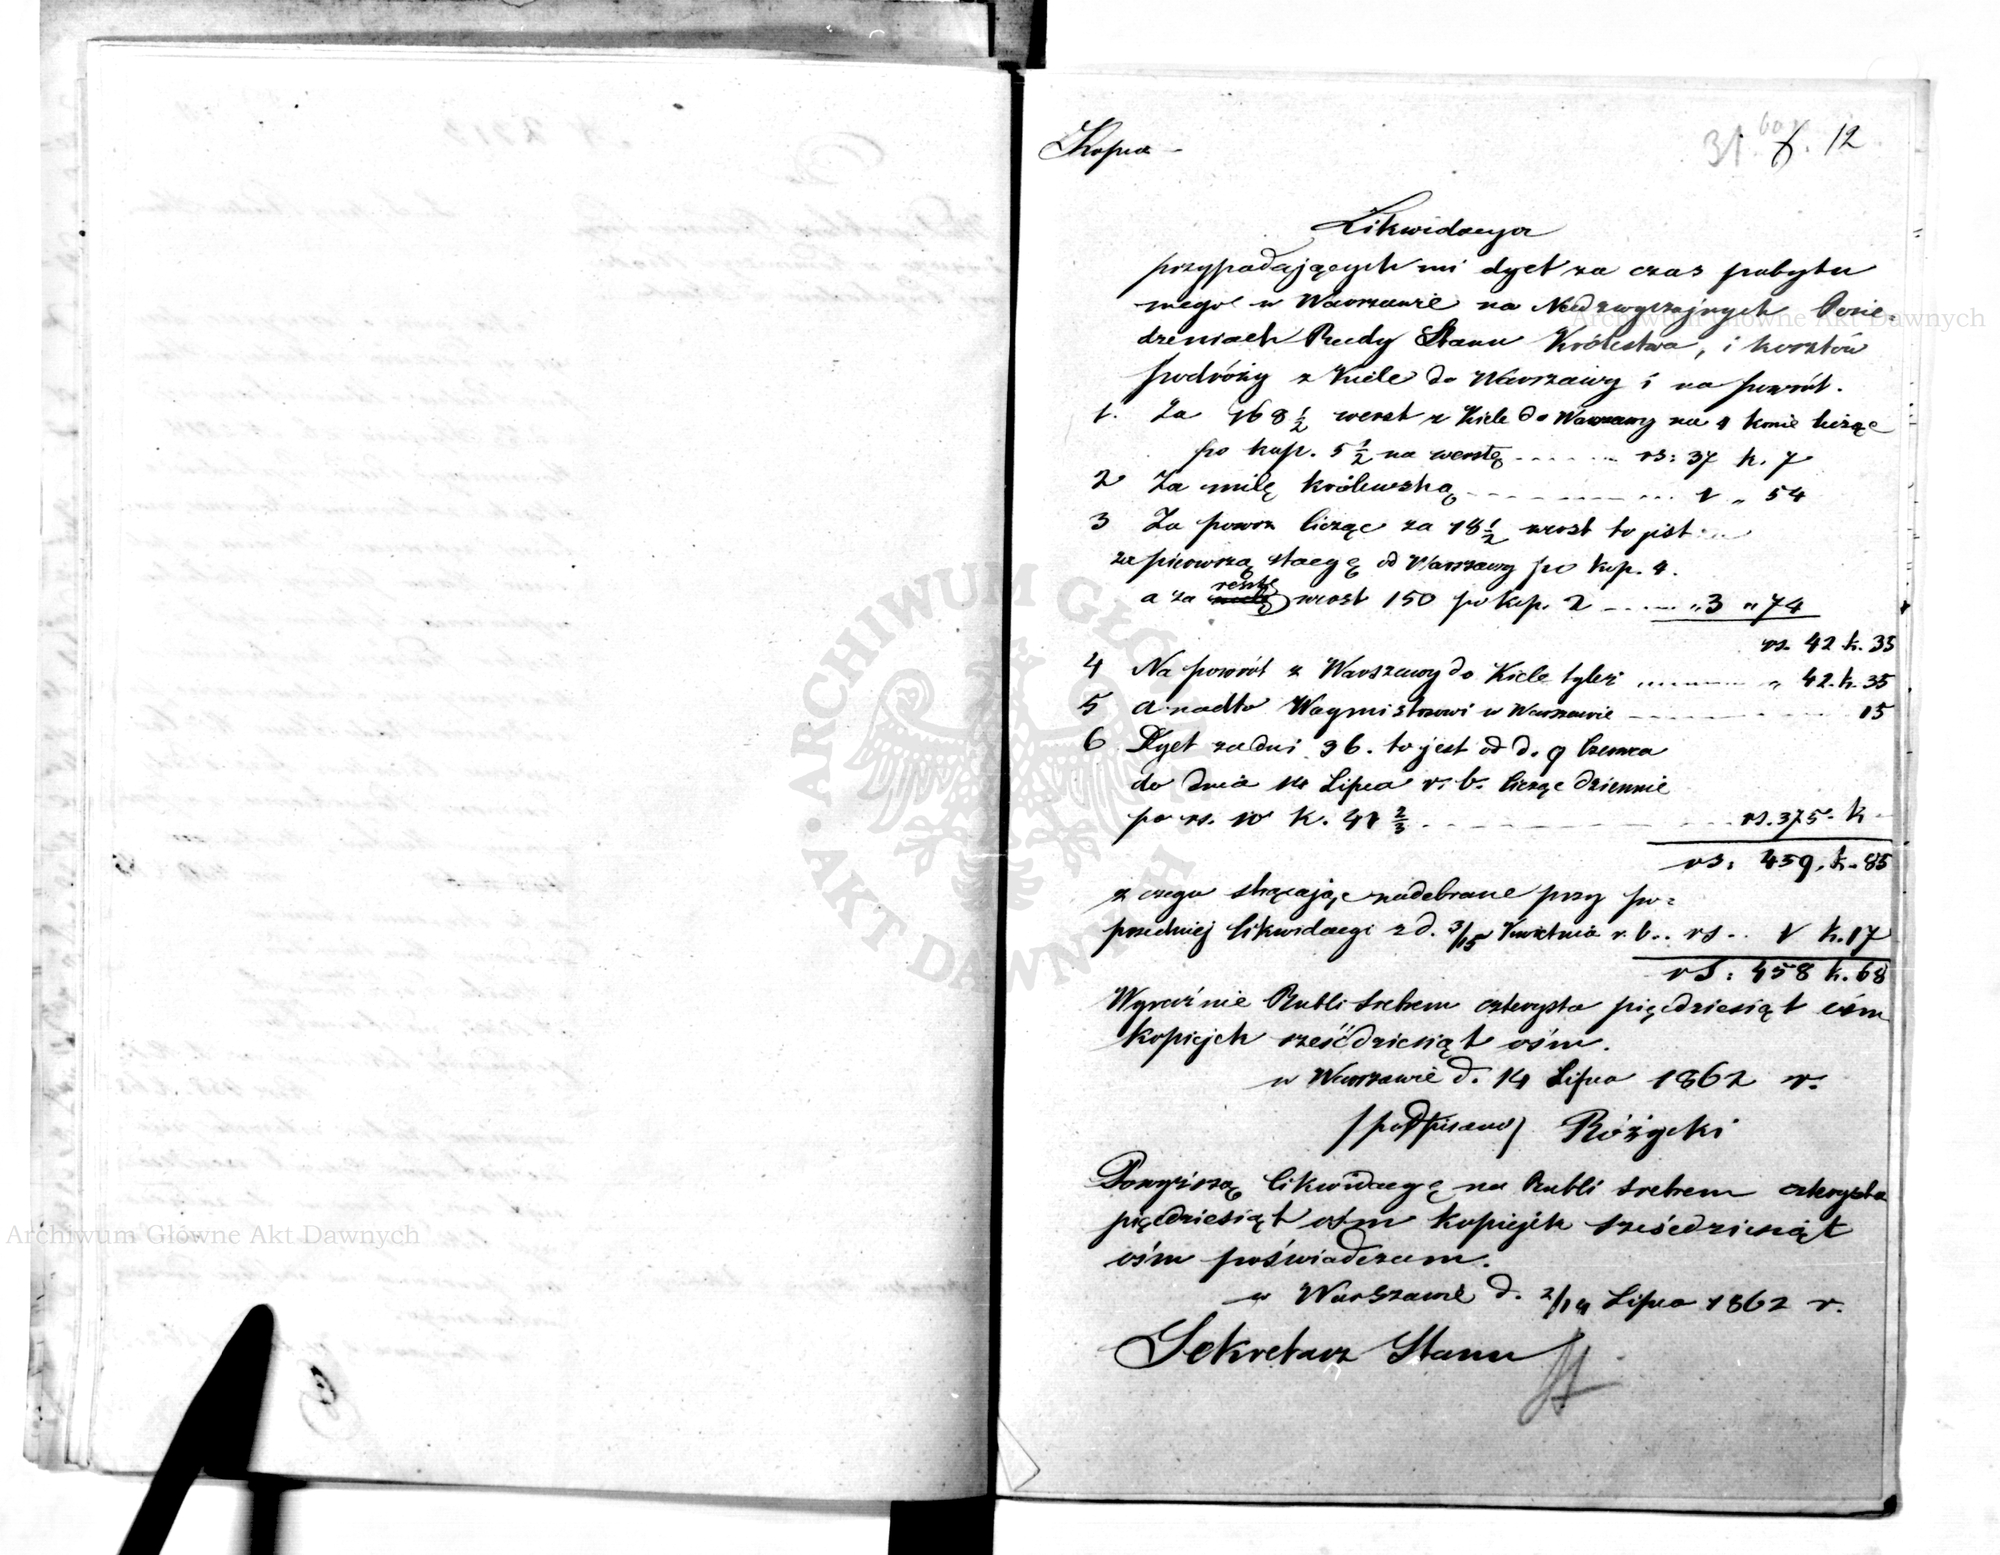 Kopia
31. 12
Likwidacya
przypadających mi dyet za czas pobytu
mego w Warszawie na Nadzwyczajnych Posie-
dzeniach Rady Stanu Królestwa, i kosztów
podróży z Kielc do Warszawy i na powrót.
1. Za 168 1/2 werst z Kielc do Warszawy na 4 konie licząc
po kop. 5 1/2 na werstę rs: 37 k. 7
2 Za milę królewską 1 „ 54
3 Za powóz licząc za 18 1/2 werst to jest
za pierwszą stacyę od Warszawy po kop. 4.
a za resztę werst 150 po kop. 2 „ 3 „ 74
rs. 42 k. 35
4 Na powrót z Warszawy do Kielc tyleż „ 42. k. 35
5 a nadto Wagmistrzowi w Warszawie 15
6 Dyet za dni 36. to jest od d. 9 Czerwca
do dnia 14 Lipca r. b. licząc dziennie
po rs. 10 k. 41 2/3 rs. 375. k -
rs: 459. k. 85
z czego strącając nadebrane przy po=
przedniej likwidacyi z d. 3/15 Kwietnia r. b.. rs.. 1 k. 17
rs: 458 k. 68
Wyraźnie Rubli srebrem czterysta pięćdziesiąt ośm
kopiejek sześćdziesiąt ośm.
w Warszawie d. 14 Lipca 1862 r.
/podpisano/ Różycki
Powyższą likwidacyę na Rubli srebrem czterysta
pięćdziesiąt ośm kopiejek sześćdziesiąt
ośm poświadczam.
w Warszawie d. 2/14 Lipca 1862 r.
Sekretarz Stanu
Archiwum Główne Akt Dawnych
Archiwum Główne Akt Dawnych
ARCHIWUM GŁÓWNE AKT DAWNYCH